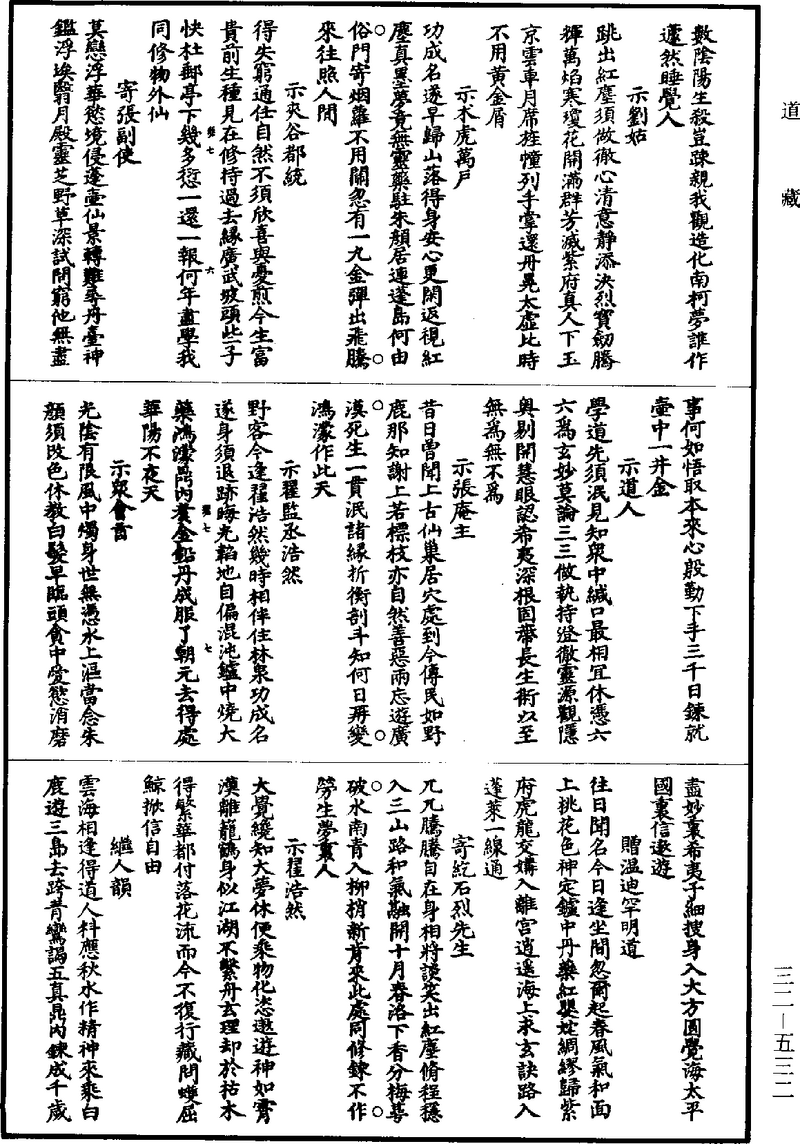 道藏
數陰陽生殺豈疎親我觀造化南柯夢誰作
蘧然睡覺人
示劉姑
跳出紅塵須做徹心清意靜添決烈寶劒騰
輝萬焰寒瓊花開滿群芳滅紫府真人下玉
京雲車月席旌幢列手掌還丹晃太虛比時
不用黃金屑
示木虎萬戶
功成名遂早歸山落得身安心更閑返視紅
塵真墨夢竟無靈藥駐朱顏居連蓬島何由
俗門寄烟蘿不用關忽有一丸金彈出飛騰
來往照人間
示夾谷都統
得失窮通任自然不須欣喜與憂煎今生富
貴前生種見在修持過去緣廣武坡頭些子
快杜郵亭下幾多愆一還一報何年盡學我
同修物外仙
寄張副使
莫戀浮華慾境侵蓬壺仙景轉難尋丹臺神
鑑浮埃翳月殿靈芝野草深試問窮他無盡
事何如悟取本來心殷勤下手三千日鍊就
壺中一井金
示道人
學道先須泯見知眾中緘口最相宜休憑六
六為玄妙莫論三三做執持澄徹靈源觀隱
奧剔開慧眼認希夷深根固蔕長生術以至
無為無不為
示張庵主
昔日曾聞上古仙巢居穴處到今傳民如野
鹿那知謝上若標枝亦自然善惡兩忘遊廣
漠死生一貫泯諸緣折衡剖斗知何日再變
鴻濛作此天
示翟監丞浩然
野客今逢翟浩然幾時相伴住林泉功成名
遂身須退跡晦光韜地自偏混沌鑪中燒大
藥鴻濛鼎內養金鉛丹成服了朝元去得處
華陽不夜天
示眾會首
光陰有限風中燭身世無憑水上漚當念朱
顏須改色休教白髮早臨頭貪中愛慾消磨
盡妙裏希夷子細搜身入大方圓覺海太平
國裏信遨遊
贈溫迪罕明道
往日聞名今日逢坐間忽爾起春風氣和面
上桃花色神定鑪中丹藥紅嬰姹綢繆歸紫
府虎龍交媾入離宮逍遙海上求玄訣路入
蓬萊一線通
寄紇石烈先生
兀兀騰騰自在身相將談笑出紅塵脩程穩
入三山路和氣融開十月春洛下香分梅萼
破水南青入柳梢新肯來此處同修鍊不作
勞生夢裏人
示翟浩然
大覺纔知大夢休便乘物化恣遨遊神如霄
漢離籠鶴身似江湖不繫舟玄理却於枯木
得繁華都付落花流而今不復行藏問蠖屈
鯨掀信自由
繼人韻
雲海相逢得道人料應秋水作精神來乘白
鹿遊三島去跨青鸞謁五真鼎內鍊成千歲
三二—五三二